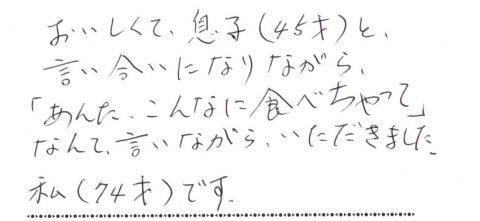 おいしくて、息子(45才)と、
言い合いになりながら、
「あんた、こんなに食べちゃって」
なんて、言いながら、いただきました
私(74才)です.